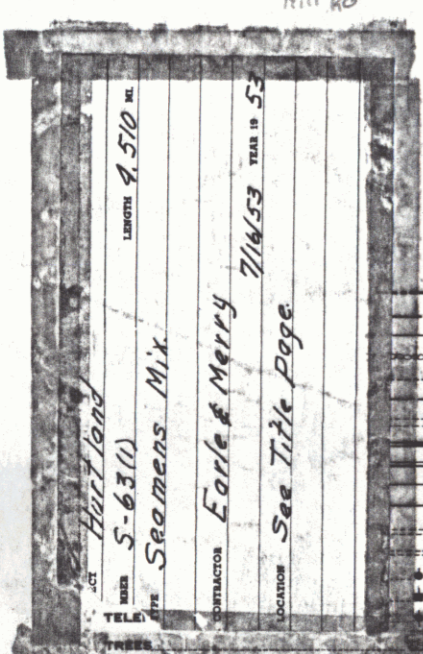 Hurtland
S-63(1) LENGTH 4.510 MI.
TYPE Seamens Mix.
CONTRACTOR Earle & Merry
7/16/53 YEAR 19 53
LOCATION See Title Page.
TELE
TREES